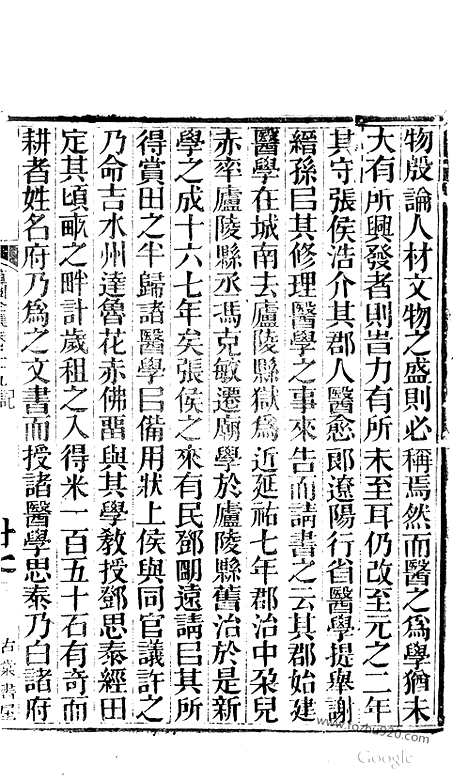 物殷論人材文物之盛則必稱焉然而醫之爲學猶未
大有所興發者則皆力有所未至耳仍改至元之二年
其守張侯浩介其郡人醫愈郎遼陽行省醫學提舉謝
縉孫㠯其修理醫學之事來告而請書之云其郡始建
醫學在城南去廬陵縣獄爲近延祐七年郡治中朶兒
赤率廬陵縣丞馮克敏遷廟學於廬陵縣舊治於是新
學之成十六七年矣張侯之來有民鄧剛遠請㠯其所
得賞田之半歸諸醫學㠯備用狀上侯與同官議許之
乃命吉水州達魯花赤佛畱與其學敎授鄧思泰經田
定其頃畝之畔計歲租之入得米一百五十石有奇而
耕者姓名府乃爲之文書而授諸醫學思泰乃白諸府
古棠書屋
www.fozhu920.com
Google